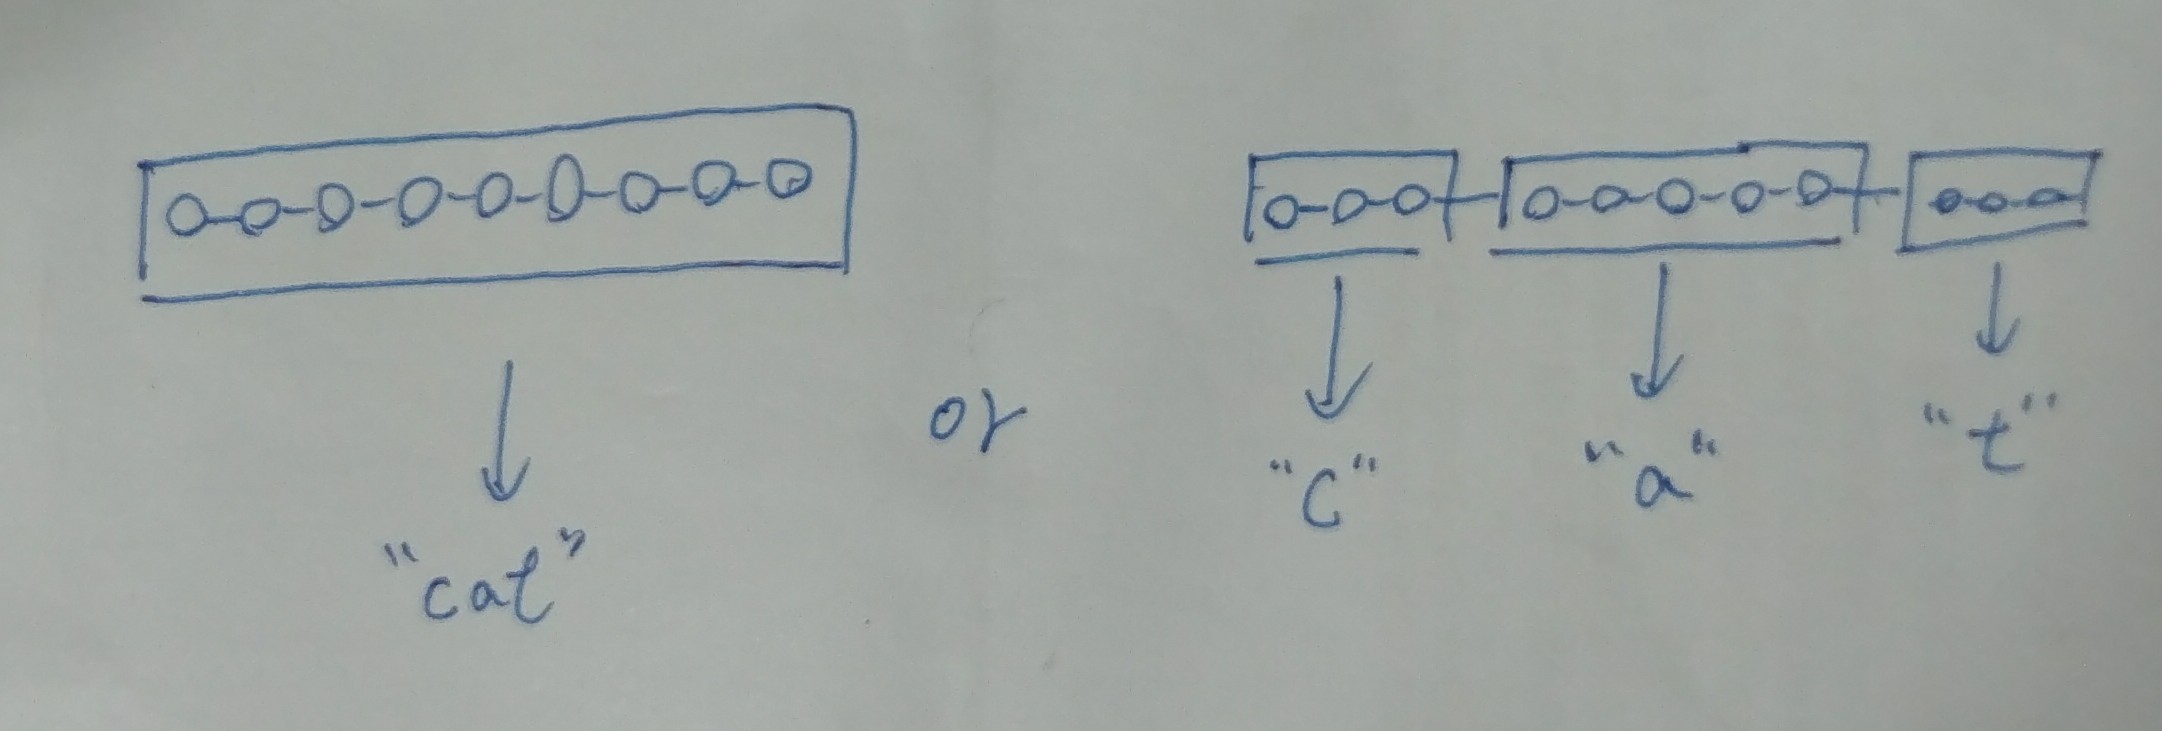 "cat"
or
"C"
"a"
"t"